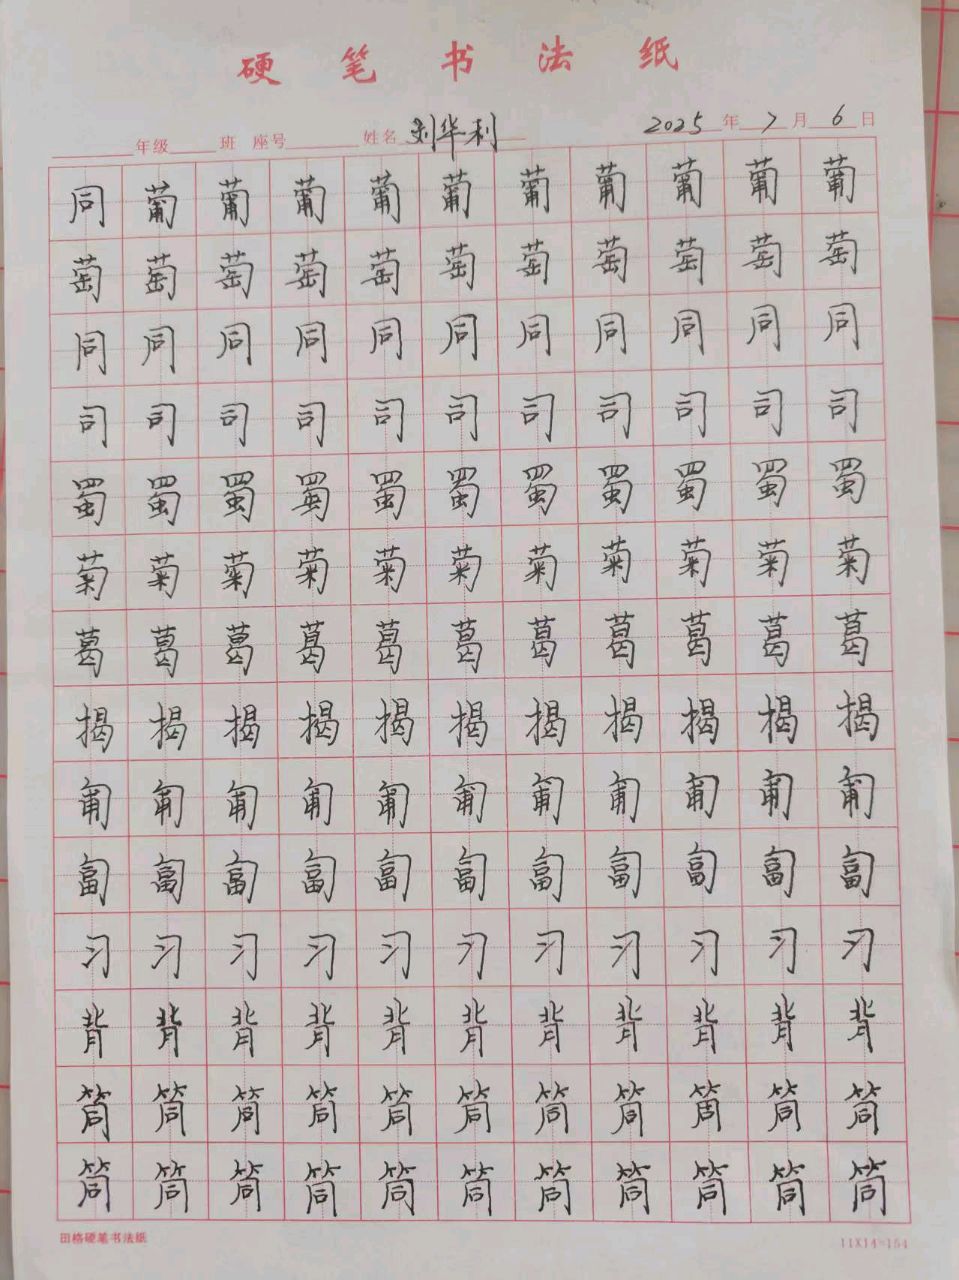 硬笔书法纸
年级 班 座号 姓名 刘华利 2025年7月6日
同葡葡葡葡葡葡葡葡葡葡
萄萄萄萄萄萄萄萄萄萄萄
同同同同同同同同同同同
司司司司司司司司司司司
蜀蜀蜀蜀蜀蜀蜀蜀蜀蜀蜀
菊菊菊菊菊菊菊菊菊菊菊
葛葛葛葛葛葛葛葛葛葛葛
揭揭揭揭揭揭揭揭揭揭揭
匍匍匍匍匍匍匍匍匍匍匍
匐匐匐匐匐匐匐匐匐匐匐
习习习习习习习习习习习
背背背背背背背背背背背
筒筒筒筒筒筒筒筒筒筒筒
筒筒筒筒筒筒筒筒筒筒筒
田格硬笔书法纸 11X14=154